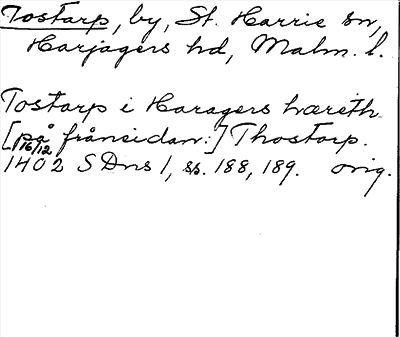 Tostarp, by, St. Harrie sn,
Harjagers hd, Malm. l.
Tostarp i Haragers hæreth
[på frånsidan:] Thostorp.
16/12
1402 SDns 1, ss. 188, 189. orig.